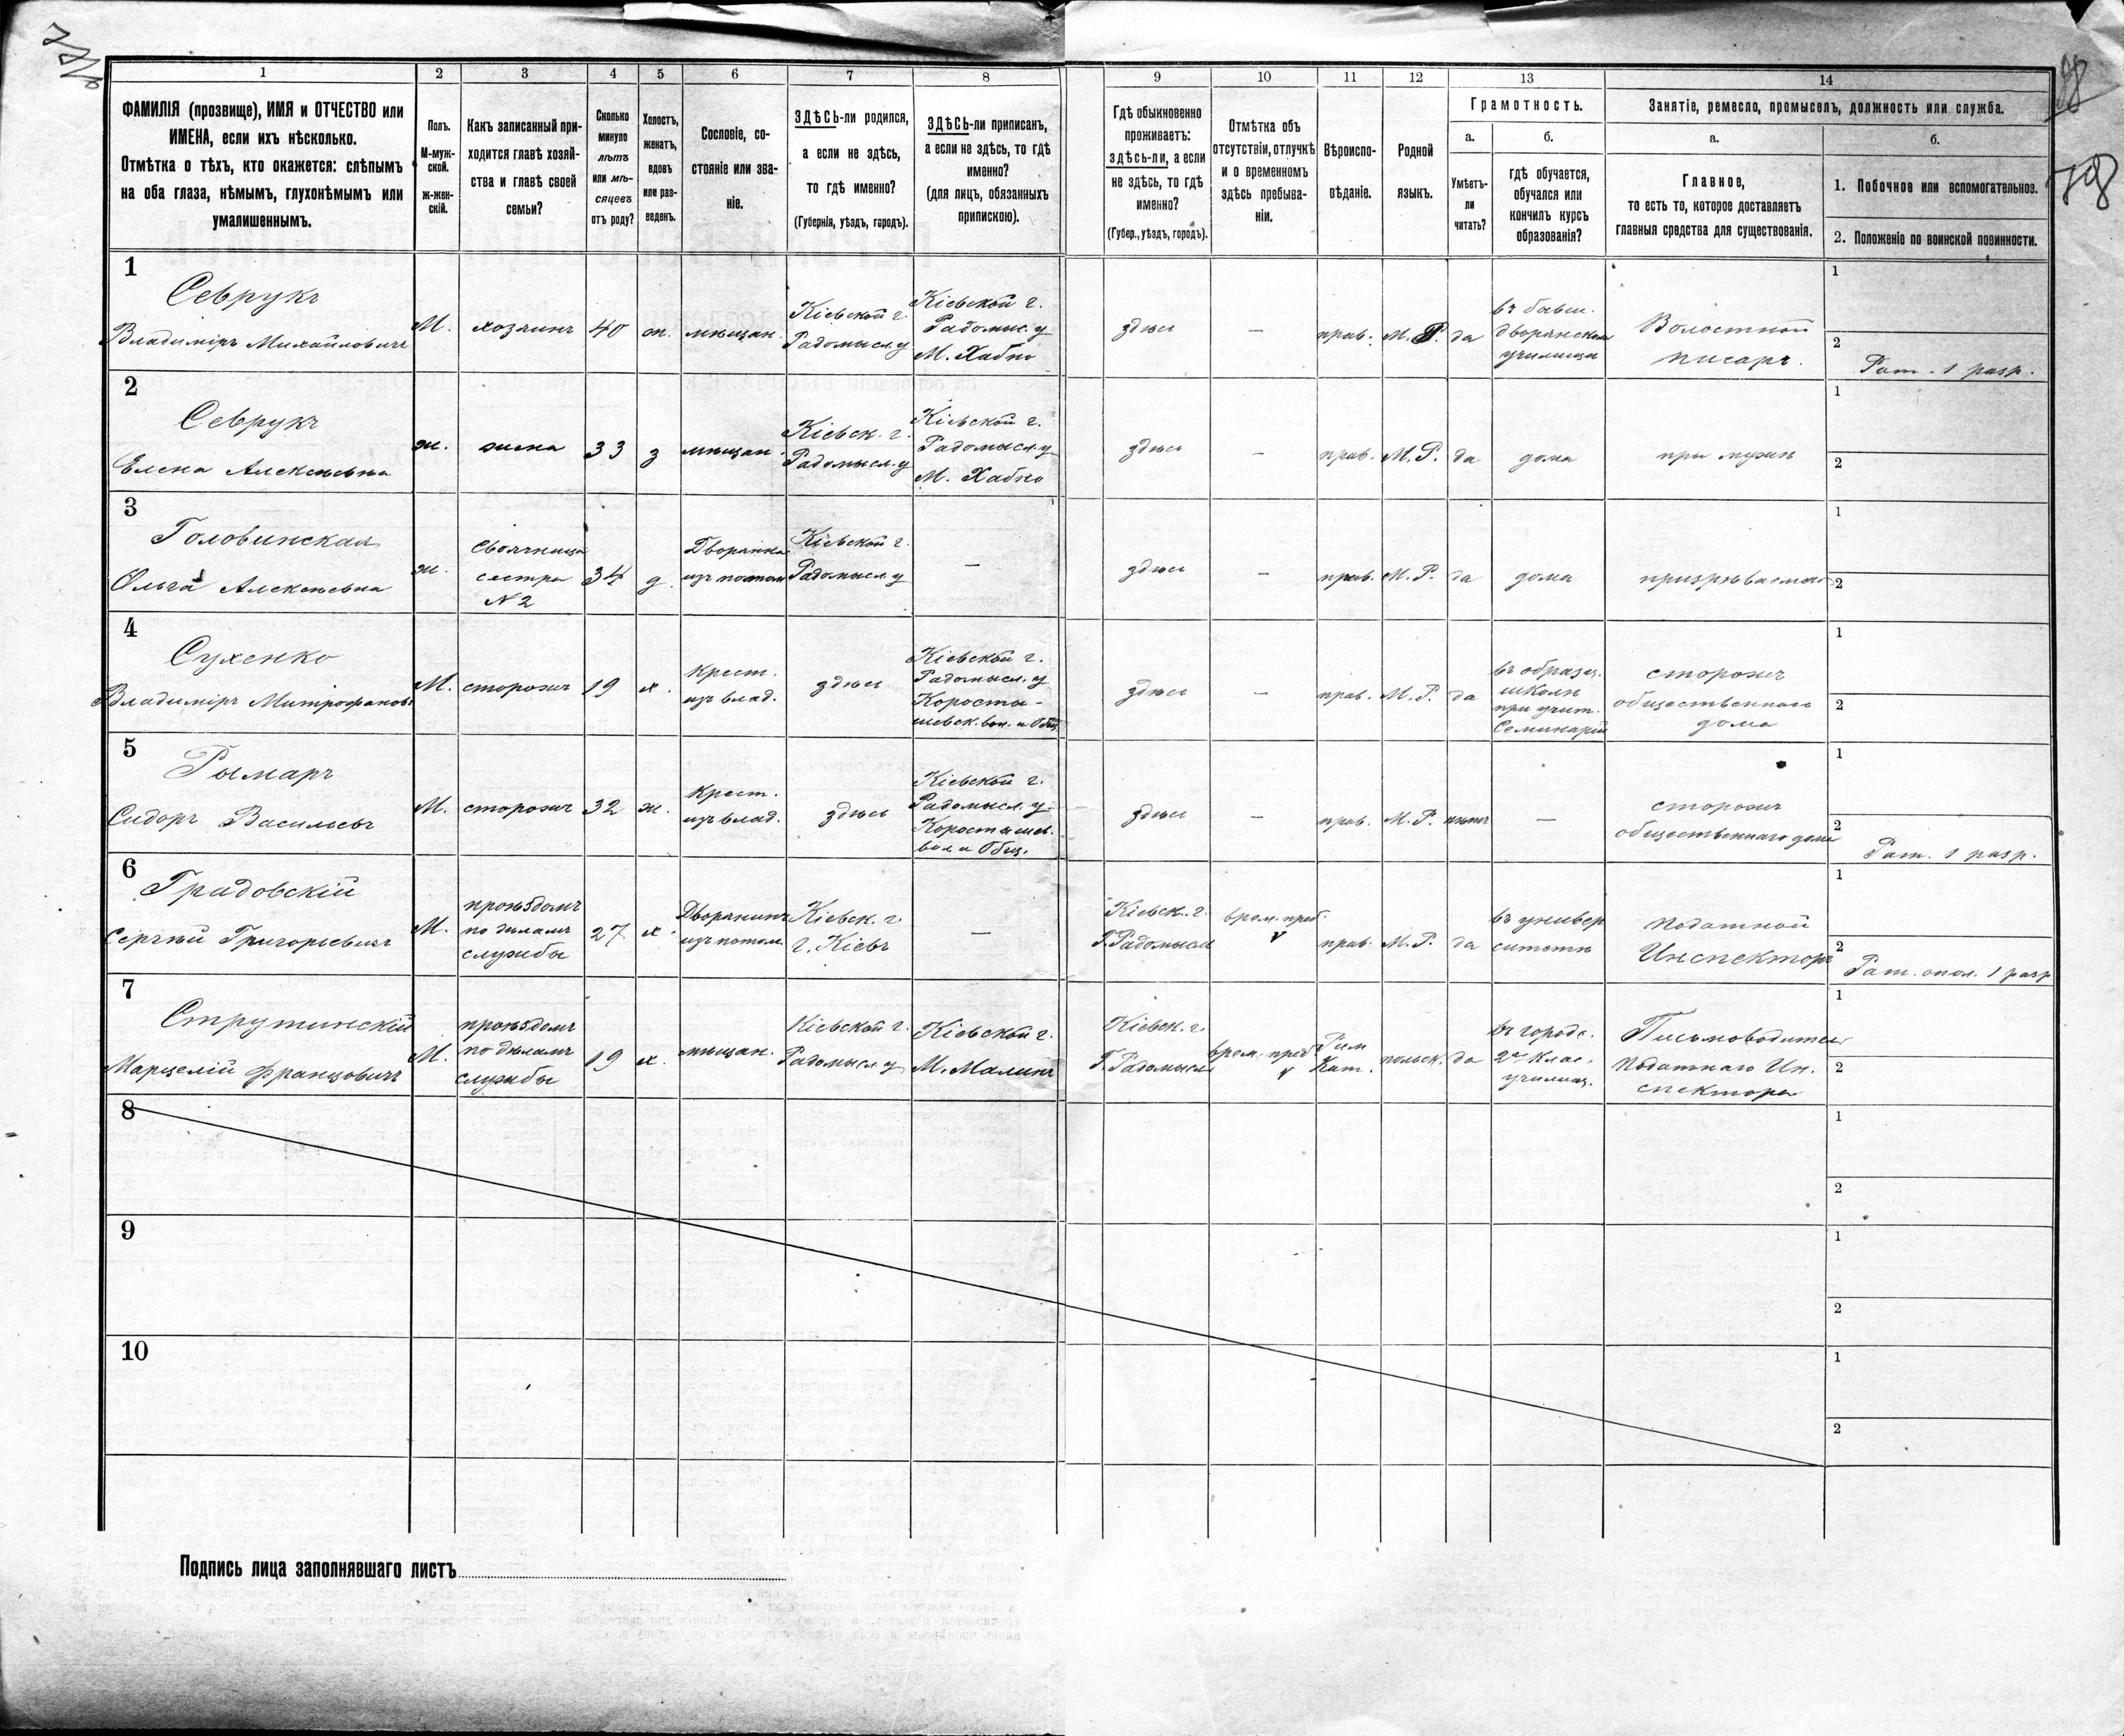 78
1 2 3 4 5 6 7 8 9 10 11 12 13 14
ФАМИЛІЯ (прозвище), ИМЯ и ОТЧЕСТВО или
ИМЕНА, если ихъ нѣсколько.
Отмѣтка о тѣхъ, кто окажется: слѣпымъ
на оба глаза, нѣмымъ, глухонѣмымъ или
умалишеннымъ.
Полъ.
М-муж-
ской.
ж-жен-
скій.
Какъ записанный при-
ходится главѣ хозяй-
ства и главѣ своей
семьи?
Сколько
минуло
лѣтъ
или мѣ-
сяцевъ
отъ роду?
Холостъ,
женатъ,
вдовъ
или раз-
веденъ.
Сословіе, со-
стояніе или зва-
ніе.
ЗДѢСЬ-ли родился,
а если не здѣсь,
то гдѣ именно?
(Губернія, уѣздъ, городъ).
ЗДѢСЬ-ли приписанъ,
а если не здѣсь, то гдѣ
именно?
(для лицъ, обязанныхъ
припискою).
Гдѣ обыкновенно
проживаетъ:
здѣсь-ли, а если
не здѣсь, то гдѣ
именно?
(Губер., уѣздъ, городъ).
Отмѣтка объ
отсутствіи, отлучкѣ
и о временномъ
здѣсь пребыва-
ніи.
Вѣроиспо-
вѣданіе.
Родной
языкъ.
Грамотность.
а.
Умѣетъ-
ли
читать?
б.
гдѣ обучается,
обучался или
кончилъ курсъ
образованія?
Занятіе, ремесло, промыселъ, должность или служба.
а.
Главное,
то есть то, которое доставляетъ
главныя средства для существованія.
б.
1. Побочное или вспомогательное.
2. Положеніе по воинской повинности.
1
Севрукъ
Владиміръ Михайловичъ
М.
хозяинъ
40
ж.
мѣщан.
Кіевской г.
Радомысл. у
Кіевской г.
Радомыс. у
М. Хабно
здѣсь
—
прав.
М. Р.
да
въ бывш.
дворянском
училищѣ
Волостной
писарь.
1
2
Рат. 1 разр.
2
Севрукъ
Елена Алексѣевна
ж.
жена
33
з
мѣщан.
Кіевск. г.
Радомысл. у
Кіевской г.
Радомысл. у
М. Хабно
здѣсь
—
прав.
М. Р.
да
дома
при мужѣ
1
2
3
Головинская
Ольга Алексѣевна
ж.
Своячница
сестра
№ 2
34
д.
Дворянка
изъ потом
Кіевской г.
Радомысл. у
—
здѣсь
—
прав.
М. Р.
да
дома
призрѣваемая
1
2
4
Сухенко
Владиміръ Митрофановъ
М.
сторожъ
19
х.
Крест.
изъ влад.
здѣсь
Кіевской г.
Радомысл. у
Коросты-
шевск. вол. и Общ.
здѣсь
—
прав.
М. Р.
да
въ образц.
школѣ
при учит.
Семинаріи
сторожъ
общественнаго
дома
1
2
5
Рымаръ
Сидоръ Васильевъ
М.
сторожъ
32
ж.
Крест.
изъ влад.
здѣсь
Кіевской г.
Радомысл. у.
Коростышев.
вол и Общ.
здѣсь
—
прав.
М. Р.
нѣтъ
—
сторожъ
общественнаго дома
1
2
Рат. 1 разр.
6
Градовскій
Сергѣй Григорьевичъ
М.
проѣздомъ
по дѣламъ
службы
27
х.
Дворянинъ
изъ потом.
Кіевск. г.
г. Кіевъ
—
Кіевск. г.
Г. Радомысль
врем. преб.
прав.
М. Р.
да
въ универ
ситетѣ
Податной
Инспекторъ
1
2
Рат. опол. 1 разр
7
Струтинскій
Марцелій Францовичъ
М.
проѣздомъ
по дѣламъ
службы
19
х.
мѣщан.
Кіевской г.
Радомысл у
Кіевской г.
М. Малинъ
Кіевск. г.
Г. Радомысль
врем. преб.
Рим
Кат.
польск.
да
въ городс.
2хъ Клас.
училищ.
Письмоводитель
Податнаго Ин.
спектора
1
2
8
1
2
9
1
2
10
1
2
Подпись лица заполнявшаго листъ